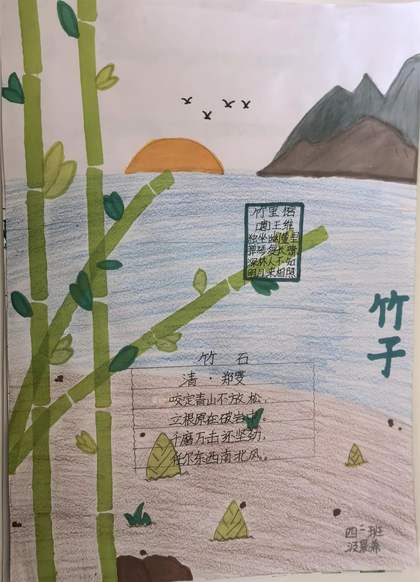 竹里馆
[唐]王维
独坐幽篁里
弹琴复长啸
深林人不知
明月来相照
竹子
竹石
清·郑燮
咬定青山不放松,
立根原在破岩中。
千磨万击还坚劲,
任尔东西南北风。
四二班